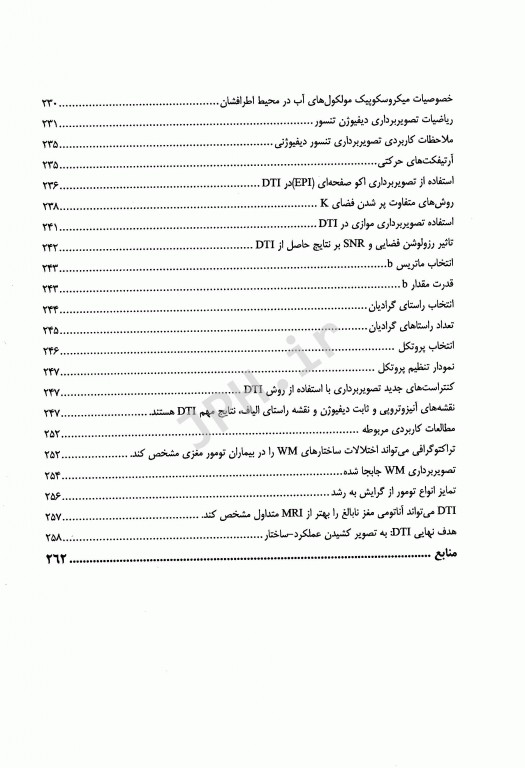 خصوصیات میکروسکوپیک مولکول‌های آب در محیط اطرافشان ........ ۲۳۰
ریاضیات تصویربرداری دیفیوژن تنسور ........ ۲۳۱
ملاحظات کاربردی تصویربرداری تنسور دیفیوژنی ........ ۲۳۵
آرتیفکت‌های حرکتی ........ ۲۳۵
استفاده از تصویربرداری اکو صفحه‌ای (EPI)در DTI ........ ۲۳۶
روش‌های متفاوت پر شدن فضای K ........ ۲۳۸
استفاده تصویربرداری موازی در DTI ........ ۲۴۱
تاثیر رزولوشن فضایی و SNR بر نتایج حاصل از DTI ........ ۲۴۲
انتخاب ماتریس b ........ ۲۴۳
قدرت مقدار b ........ ۲۴۳
انتخاب راستای گرادیان ........ ۲۴۴
تعداد راستاهای گرادیان ........ ۲۴۵
انتخاب پروتکل ........ ۲۴۶
نمودار تنظیم پروتکل ........ ۲۴۷
کنتراست‌های جدید تصویربرداری با استفاده از روش DTI ........ ۲۴۷
نقشه‌های آنیزوتروپی و ثابت دیفیوژن و نقشه راستای الیاف، نتایج مهم DTI هستند. ........ ۲۴۷
مطالعات کاربردی مربوطه ........ ۲۵۲
تراکتوگرافی می‌تواند اختلالات ساختارهای WM را در بیماران تومور مغزی مشخص کند. ........ ۲۵۲
تصویربرداری WM جابجا شده ........ ۲۵۴
تمایز انواع تومور از گرایش به رشد ........ ۲۵۶
DTI می‌تواند آناتومی مغز نابالغ را بهتر از MRI متداول مشخص کند. ........ ۲۵۷
هدف نهایی DTI: به تصویر کشیدن عملکرد-ساختار ........ ۲۵۸
منابع ........ ۲۶۲
JPH.ir